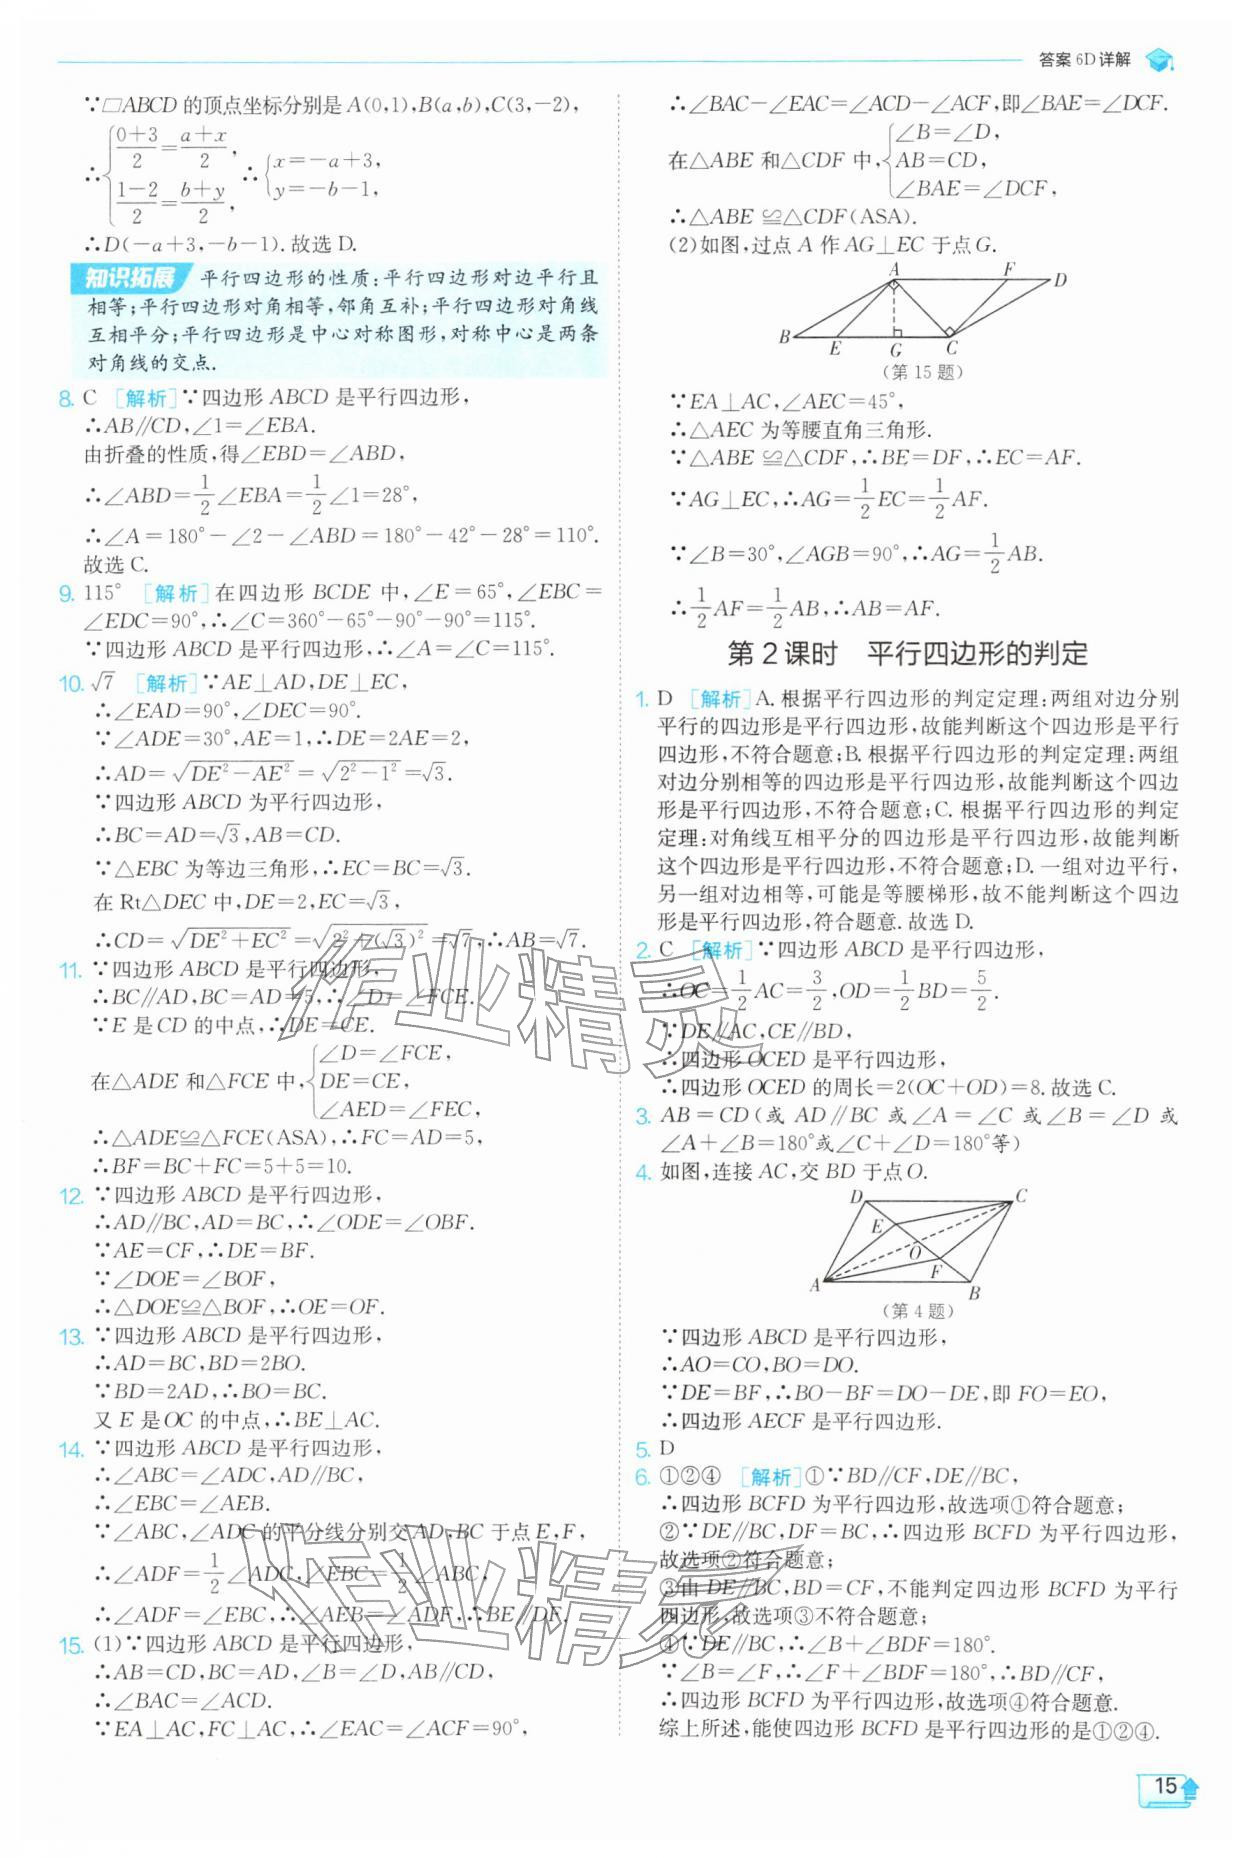 答案 6D 详解
∵▱ABCD 的顶点坐标分别是 A(0,1),B(a,b),C(3,-2),
∴{(0+3)/2=(a+x)/2, (1-2)/2=(b+y)/2, ∴{x=-a+3, y=-b-1,
∴D(-a+3,-b-1).故选 D.
知识拓展 平行四边形的性质:平行四边形对边平行且
相等;平行四边形对角相等,邻角互补;平行四边形对角线
互相平分;平行四边形是中心对称图形,对称中心是两条
对角线的交点.
8. C [解析]∵四边形 ABCD 是平行四边形,
∴AB∥CD,∠1=∠EBA.
由折叠的性质,得∠EBD=∠ABD,
∴∠ABD=1/2∠EBA=1/2∠1=28°,
∴∠A=180°-∠2-∠ABD=180°-42°-28°=110°.
故选 C.
9. 115° [解析]在四边形 BCDE 中,∠E=65°,∠EBC=
∠EDC=90°,∴∠C=360°-65°-90°-90°=115°.
∵四边形 ABCD 是平行四边形,∴∠A=∠C=115°.
10. √7 [解析]∵AE⊥AD,DE⊥EC,
∴∠EAD=90°,∠DEC=90°.
∵∠ADE=30°,AE=1,∴DE=2AE=2,
∴AD=√(DE²-AE²)=√(2²-1²)=√3.
∵四边形 ABCD 为平行四边形,
∴BC=AD=√3,AB=CD.
∵△EBC 为等边三角形,∴EC=BC=√3.
在 Rt△DEC 中,DE=2,EC=√3,
∴CD=√(DE²+EC²)=√(2²+(√3)²)=√7,∴AB=√7.
11. ∵四边形 ABCD 是平行四边形,
∴BC∥AD,BC=AD=5,∴∠D=∠FCE.
∵E 是 CD 的中点,∴DE=CE.
在△ADE 和△FCE 中,{∠D=∠FCE, DE=CE, ∠AED=∠FEC,
∴△ADE≌△FCE(ASA),∴FC=AD=5,
∴BF=BC+FC=5+5=10.
12. ∵四边形 ABCD 是平行四边形,
∴AD∥BC,AD=BC,∴∠ODE=∠OBF.
∵AE=CF,∴DE=BF.
∵∠DOE=∠BOF,
∴△DOE≌△BOF,∴OE=OF.
13. ∵四边形 ABCD 是平行四边形,
∴AD=BC,BD=2BO.
∵BD=2AD,∴BO=BC.
又 E 是 OC 的中点,∴BE⊥AC.
14. ∵四边形 ABCD 是平行四边形,
∴∠ABC=∠ADC,AD∥BC,
∴∠EBC=∠AEB.
∵∠ABC,∠ADC 的平分线分别交 AD,BC 于点 E,F,
∴∠ADF=1/2∠ADC,∠EBC=1/2∠ABC,
∴∠ADF=∠EBC,∴∠AEB=∠ADF,∴BE∥DF.
15. (1)∵四边形 ABCD 是平行四边形,
∴AB=CD,BC=AD,∠B=∠D,AB∥CD,
∴∠BAC=∠ACD.
∵EA⊥AC,FC⊥AC,∴∠EAC=∠ACF=90°,
∴∠BAC-∠EAC=∠ACD-∠ACF,即∠BAE=∠DCF.
在△ABE 和△CDF 中,{∠B=∠D, AB=CD, ∠BAE=∠DCF,
∴△ABE≌△CDF(ASA).
(2)如图,过点 A 作 AG⊥EC 于点 G.
A F D
B E G C
(第 15 题)
∵EA⊥AC,∠AEC=45°,
∴△AEC 为等腰直角三角形.
∵△ABE≌△CDF,∴BE=DF,∴EC=AF.
∵AG⊥EC,∴AG=1/2EC=1/2AF.
∵∠B=30°,∠AGB=90°,∴AG=1/2AB.
∴1/2AF=1/2AB,∴AB=AF.
第 2 课时 平行四边形的判定
1. D [解析]A. 根据平行四边形的判定定理:两组对边分别
平行的四边形是平行四边形,故能判断这个四边形是平行
四边形,不符合题意;B. 根据平行四边形的判定定理:两组
对边分别相等的四边形是平行四边形,故能判断这个四边
形是平行四边形,不符合题意;C. 根据平行四边形的判定
定理:对角线互相平分的四边形是平行四边形,故能判断
这个四边形是平行四边形,不符合题意;D. 一组对边平行,
另一组对边相等,可能是等腰梯形,故不能判断这个四边
形是平行四边形,符合题意.故选 D.
2. C [解析]∵四边形 ABCD 是平行四边形,
∴OC=1/2AC=3/2,OD=1/2BD=5/2.
∵DE∥AC,CE∥BD,
∴四边形 OCED 是平行四边形,
∴四边形 OCED 的周长=2(OC+OD)=8.故选 C.
3. AB=CD(或 AD∥BC 或∠A=∠C 或∠B=∠D 或
∠A+∠B=180°或∠C+∠D=180°等)
4. 如图,连接 AC,交 BD 于点 O.
D C
E
O
F
A B
(第 4 题)
∵四边形 ABCD 是平行四边形,
∴AO=CO,BO=DO.
∵DE=BF,∴BO-BF=DO-DE,即 FO=EO,
∴四边形 AECF 是平行四边形.
5. D
6. ①②④ [解析]①∵BD∥CF,DE∥BC,
∴四边形 BCFD 为平行四边形,故选项①符合题意;
②∵DE∥BC,DF=BC,∴四边形 BCFD 为平行四边形,
故选项②符合题意;
③由 DE∥BC,BD=CF,不能判定四边形 BCFD 为平行
四边形,故选项③不符合题意;
④∵DE∥BC,∴∠B+∠BDF=180°.
∵∠B=∠F,∴∠F+∠BDF=180°,∴BD∥CF,
∴四边形 BCFD 为平行四边形,故选项④符合题意.
综上所述,能使四边形 BCFD 是平行四边形的是①②④.
作业精灵
作业精灵
15